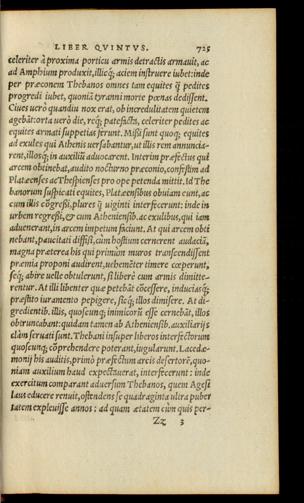 LIBER QVINTVS. 725
celeriter à proxima porticu armis detractis armauit, ac
ad Amphium produxit, illicq́; aciem instruere iubet: inde
per præconem Thebanos omnes tam equites q̃ pedites
progredi iubet, quoniã tyranni morte pœnas dedissent.
Ciues uerò quandiu nox erat, ob incredulitatem quietem
agebāt: orta uerò die, req́; patefacta, celeriter pedites ac
equites armati suppetias ferunt. Missi sunt quoq; equites
ad exules qui Athenis uersabantur, ut illis rem annuncia-
rent, illosq́; in auxiliũ aduocarent. Interim præfectus qui
arcem obtinebat, audito nocturno præconio, confestim ad
Platæenses ac Thespienses pro ope petenda mittit. Id The
banorum suspicati equites, Platæensibus obuiam eunt, ac
cum illis cōgreßi, plures q̃ uiginti interfecerunt: inde in
urbem regreßi, & cum Atheniensib. ac exulibus, qui iam
aduenerant, in arcem impetum faciunt. At qui arcem obti
nebant, paucitati diffisi, cùm hostium cernerent audaciã,
magna præterea his qui primùm muros transcendissent
præmia proponi audirent, uehemēter timere cœperunt,
seq́; abire uelle obtulerunt, si liberè cum armis dimitte-
rentur. At illi libenter quæ petebāt cōcessere, induciasq́;
præstito iuramento pepigere, sicq́; illos dimisere. At di-
gredientib. illis, quoscunq; inimicorũ esse cernebāt, illos
obtruncabant: quidam tamen ab Atheniensib. auxiliarijs
clàm seruati sunt. Thebani insuper liberos interfectorum
quoscunq; cōprehendere poterant, iugularunt. Lacedæ-
monij his auditis, primò præfectum arcis desertorē, quo-
niam auxilium haud expectauerat, interfecerunt: inde
exercitum comparant aduersum Thebanos, quem Agesi
laus educere renuit, ostendens se quadraginta ultra puber
tatem expleuisse annos: ad quam ætatem cùm quis per-
Zz 3